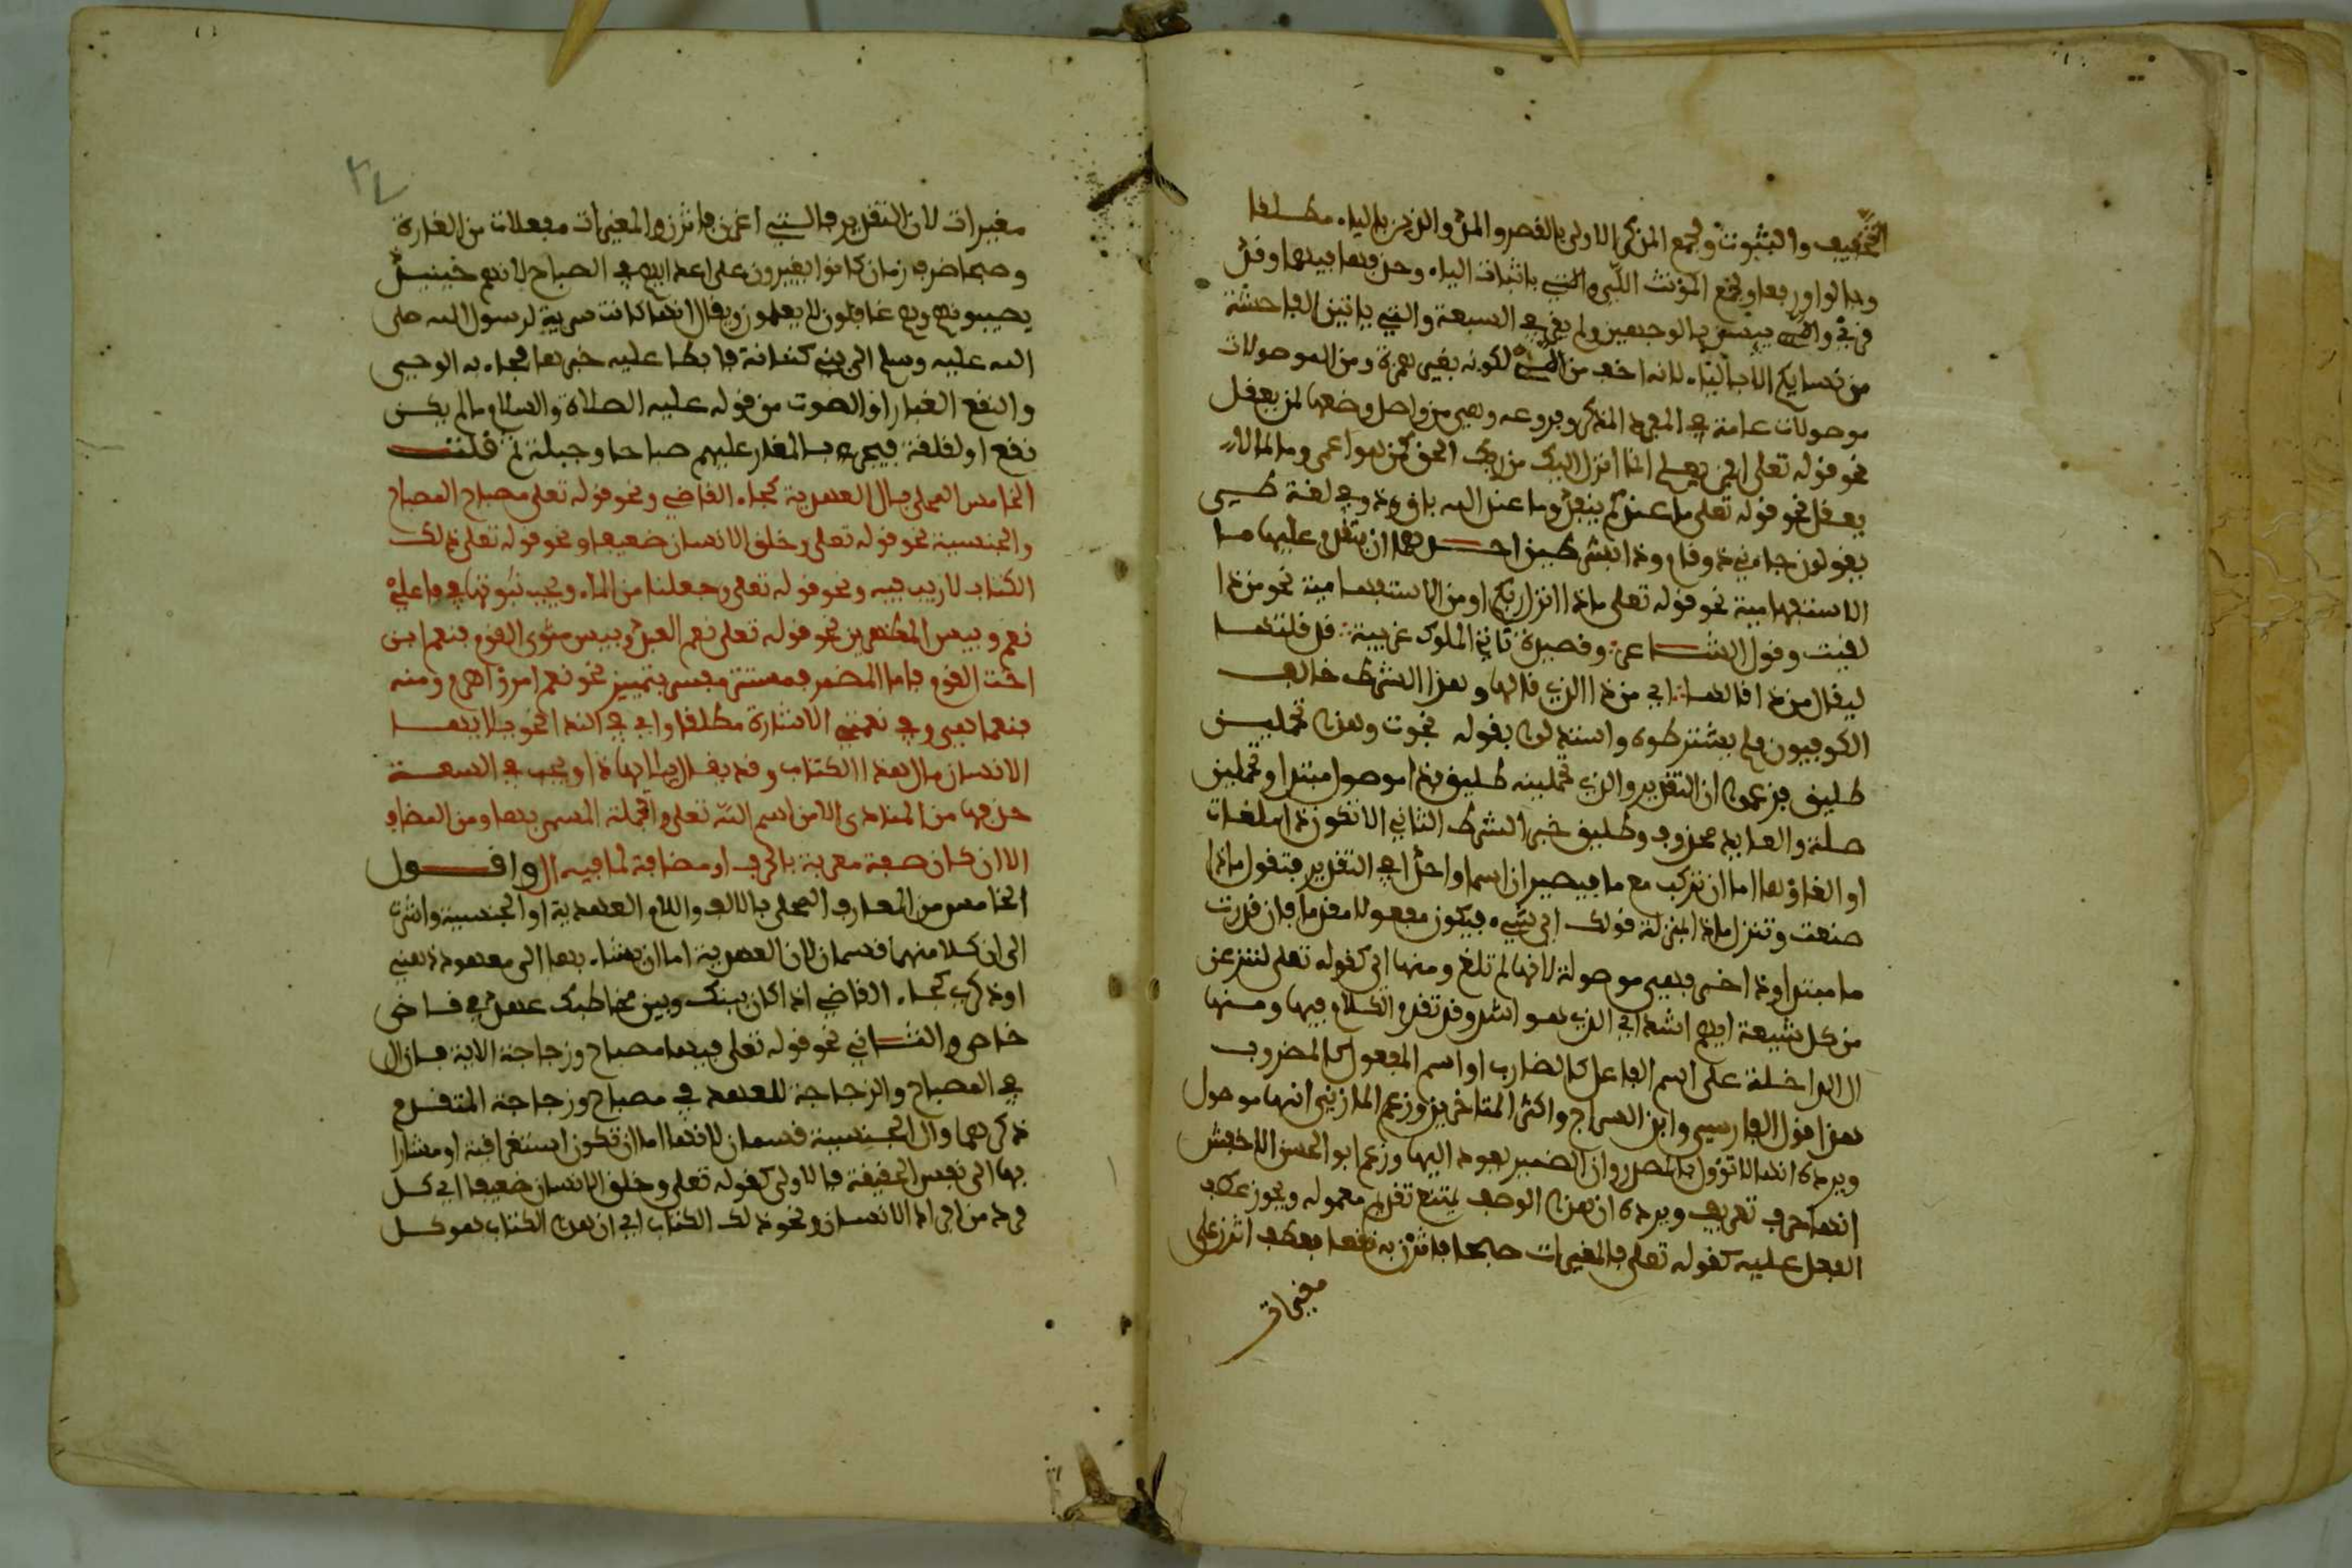 التخفيف والثبوت ولجمع المذكر الاولى بالقصر والمد والذين بالياء مطلقا
وبالواو رفعا ولجمع المؤنث اللاءي والاتي باثبات الياء وحذفها فيهما وقد
قرئ والاءي يئسن بالوجهين ولم يقرا في السبعة والتي ياتين الفاحشة
من نسايكم الا بالياء لانه اخف من اللاءي لكونه بغير همزة ومن الموصولات
موصولات عامة في المفرد المذكر وفروعه وهي من واصل وضعها لمن يعقل
نحو قوله تعلى افمن يعلم انما انزل اليك من ربك الحق كمن هو اعمى وما لما لا
يعقل نحو قوله تعلى ما عندكم ينفد وما عند الله باق وذو في لغة طيي
يقولون جاءني ذو قام وذا بشرطين احدهما ان يتقدم عليها ما
الاستفهامية نحو قوله تعلى ماذا انزل ربكم او من الاستفهامية نحو من ذا
لقيت وقول الشاعر وقصيدة تاتي الملوك غريبة قد قلتها
ليقال من ذا قالها اي من ذا الذي قالها وهذا الشرط خالف
الكوفيون فلم يشترطوه واستدلوا بقوله نجوت وهذا تحملين
طليق فزعموا ان التقدير والذي تحملينه طليق فذا موصول مبتدا وتحملين
صلة والعايد محذوف وطليق خبر الشرط الثاني الا تكون ذا ملغات
او الغاؤها اما ان تركب مع ما فيصيران اسما واحدا في التقدير فتقول ماذا
صنعت وتنزل ماذا بمنزلة قولك اي شيء فيكون مفعولا مقدما فان قدرت
ما مبتدا وذا خبر فهي موصولة لانها لم تلغ ومنها اي كقوله تعلى لننزعن
من كل شيعة ايهم اشد اي الذي هو اشد وقد تقدم الكلام فيها ومنها
ال الداخلة على اسم الفاعل كالضارب او اسم المفعول كالمضروب
هذا قول الفارسي وابن السراج واكثر المتاخرين وزعم المازني انها موصول
ويرده انها لا تؤول بالمصدر وان الضمير يعود اليها وزعم ابو الحسن الاخفش
انها حرف تعريف ويرده ان هذا الوصف يمتنع تقديم معموله ويجوز عطف
الفعل عليه كقوله تعلى فالمغيرات صبحا فاثرن به نقعا فعطف اثرن على
مغيرات
٣٧
مغيرات لان التقدير فالتي اغرن فاثرن والمغيرات مفعلات من الغارة
وصبحا ظرف زمان كانوا يغيرون على اعدايهم في الصباح لانهم حينئذ
يصيبونهم وهم غافلون لا يعلمون ويقال انها كانت سرية لرسول الله صلى
الله عليه وسلم الى بني كنانة فابطا عليه خبرها فجاء به الوحيى
والنقع الغبار او الصوت من قوله عليه الصلاة والسلام ما لم يكن
نقع او لقلقة فيجري بالمغار عليهم صباحا وجبلة ثم قلت
الخامس المحلى بال العهدية كجاء القاضي ونحو قوله تعلى مصباح المصباح
والجنسية نحو قوله تعلى وخلق الانسان ضعيفا ونحو قوله تعلى ذلك
الكتاب لا ريب فيه ونحو قوله تعلى وجعلنا من الماء ويجب ثبوتها في فاعلي
نعم وبيس المظهرين نحو قوله تعلى نعم العبد وبيس مثوى القوم فنعم ابن
اخت القوم فاما المضمر فمستتر مفسر بتمييز نحو نعم امرؤا هرم ومنه
فنعما هي وفي نعتي الاشارة مطلقا واي في الندا نحو يا ايها
الانسان ما لهذا الكتاب وقد يقال يا ايهاذا ويجب في السعة
حذفها من المنادى الا من اسم الله تعلى والجملة المسمى بها ومن المضاف
الا ان كان صفة معربة بالحرف او مضافة لما فيه ال واقول
الخامس من المعارف المحلى بالالف واللام العهدية او الجنسية واشرت
الى ان كلا منهما قسمان لان العهدية اما ان يشار بها الى معهود ذهني
او ذكري كجاء القاضي اذا كان بينك وبين مخاطبك عهد في قاضى
خاص والثاني نحو قوله تعلى فيها مصباح وزجاجة الاية فان ال
في المصباح والزجاجة للعهد في مصباح وزجاجة المتقدم
ذكرهما وال الجنسية قسمان لانها اما ان تكون استغراقية او مشارا
بها الى نفس الحقيقة فالاولى كقوله تعلى وخلق الانسان ضعيفا اي كل
فرد من افراد الانسان ونحو ذلك الكتاب اي ان هذا الكتاب هو كل